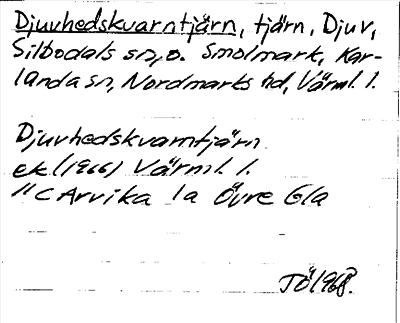 Djuvhedskvarntjärn, tjärn, Djuv,
Silbodals sn, o. Smolmark, Kar-
landa sn, Nordmarks hd, Värml. l.
Djuvhedskvarntjärn
ek (1966) Värml. l.
11 C Arvika 1a Övre Gla
TÖ 1968.